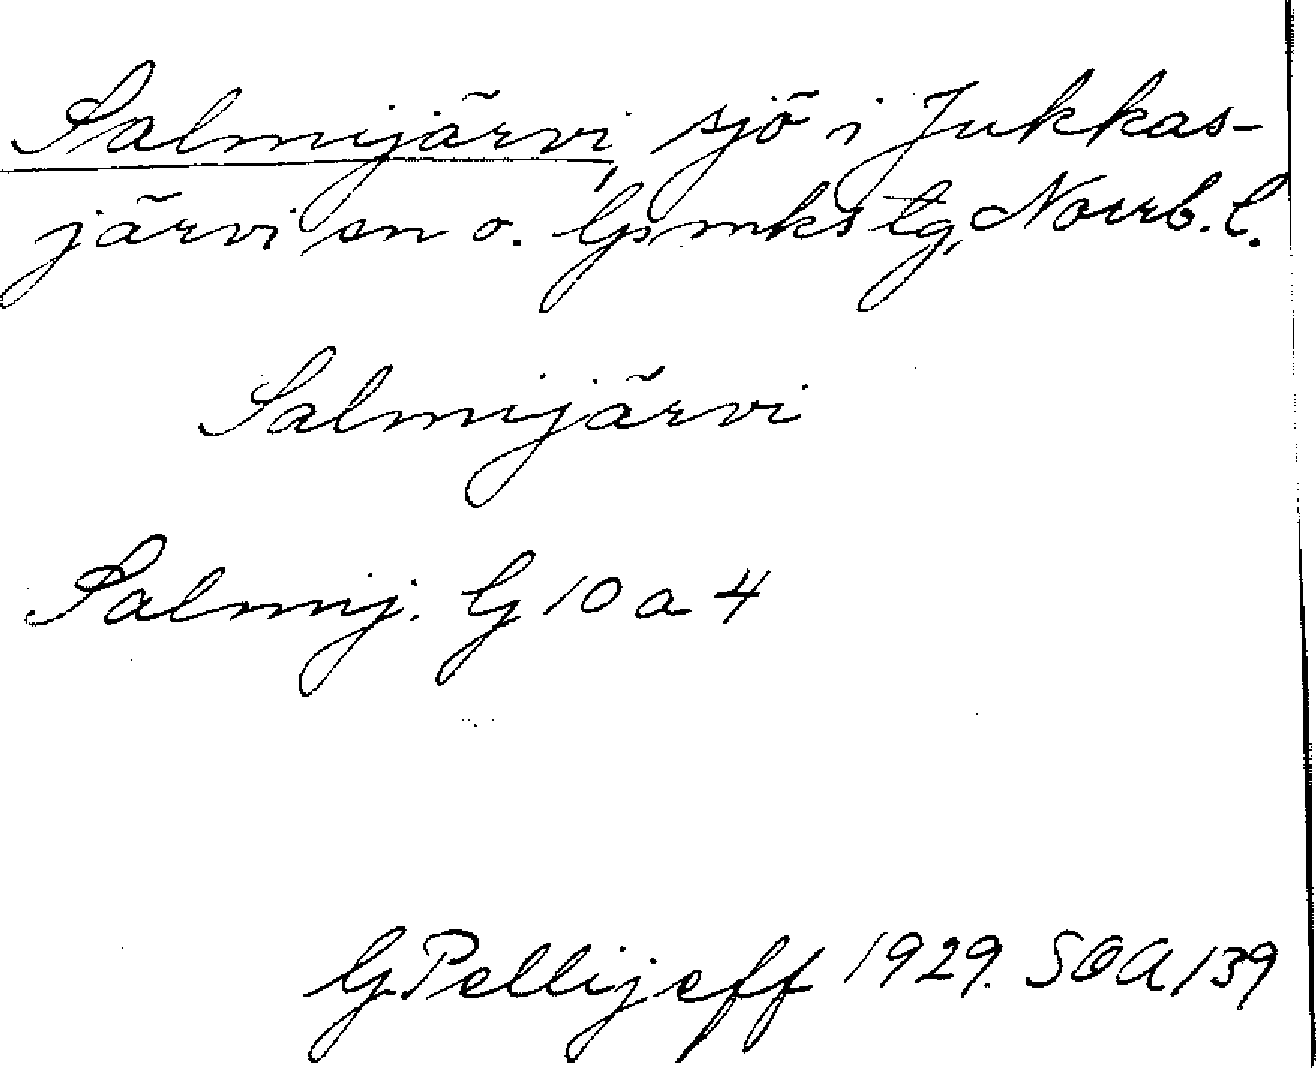 Salmijärvi, sjö i Jukkas-
järvi sn o. Gsmks tg, Norrb. l.
Salmijärvi
Salmij. G 10 a 4
G Pellijeff 1929. SOA 139